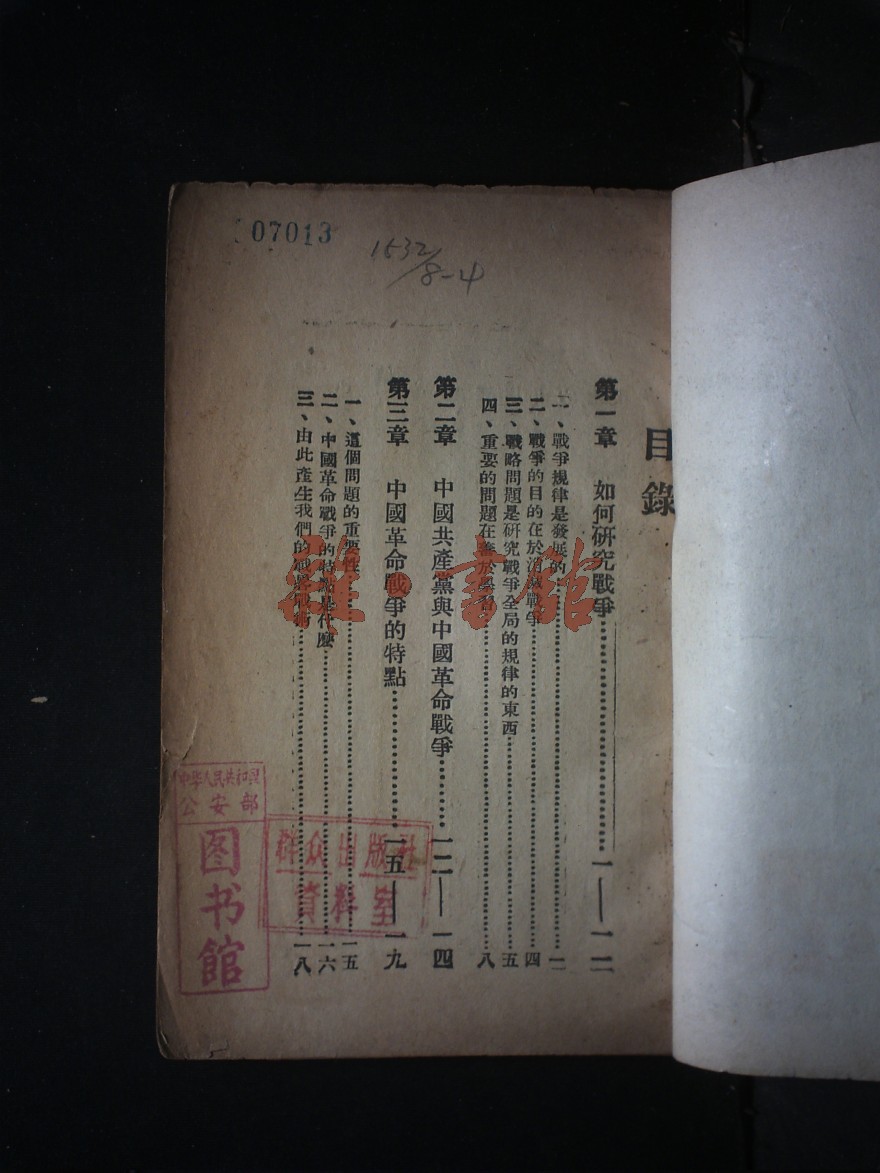 07013
1532/8-4
目錄
第一章 如何研究戰爭……一——一二
一、戰爭規律是發展的……一
二、戰爭的目的在於消滅戰爭……四
三、戰略問題是研究戰爭全局的規律的東西……五
四、重要的問題在善於學習……八
第二章 中國共產黨與中國革命戰爭……一二——一四
第三章 中國革命戰爭的特點……一五——一九
一、這個問題的重要性……一五
二、中國革命戰爭的特點是什麼……一六
三、由此產生我們的戰略戰術……一八
雜·書館
中華人民共和國
公安部
图书館
群众出版社
資料室